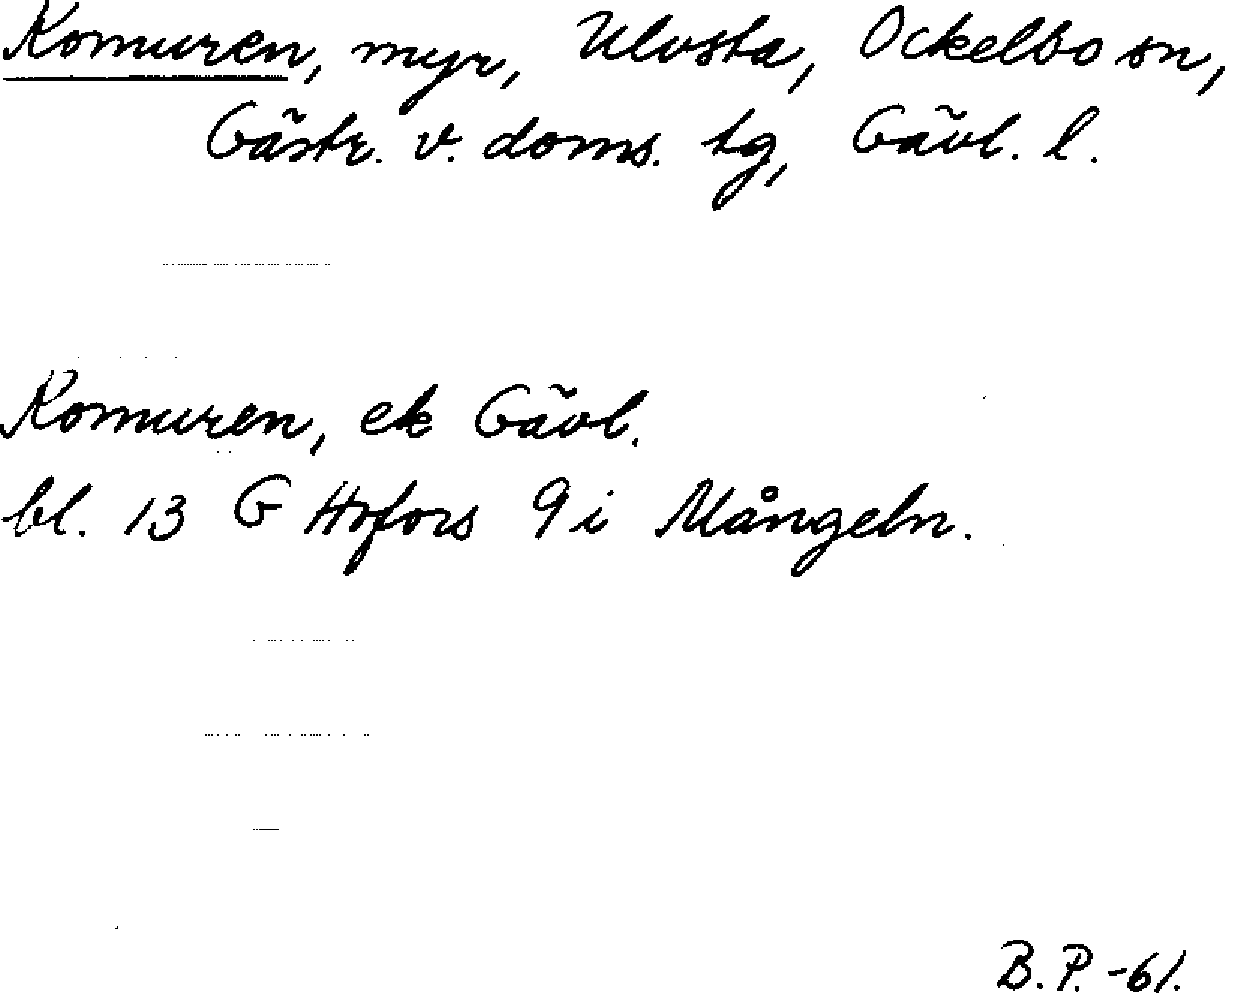 Romuren, myr, Ulvsta, Ockelbo sn,
Gästr. v. doms. tg, Gävl. l.
Romuren, ek Gävl.
bl. 13 G Hofors 9 i Mångeln.
B.P. -61.